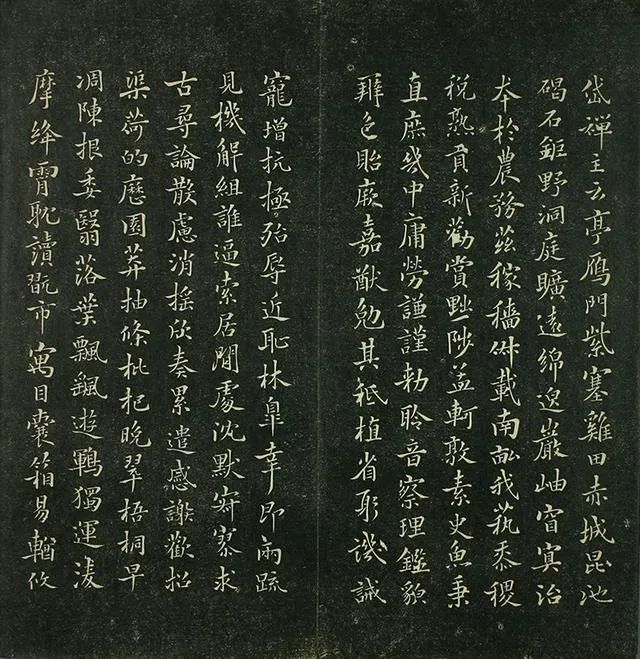 岱禪主云亭雁門紫塞雞田赤城昆池
碣石鉅野洞庭曠遠綿邈巖岫窅冥治
本於農務茲稼穡俶載南畝我蓺黍稷
稅熟貢新勸賞黜陟孟軻敦素史魚秉
直庶幾中庸勞謙謹勅聆音察理鑑貌
辨色貽厥嘉猷勉其祗植省躬譏誡
寵增抗極殆辱近恥林皋幸即兩疏
見機解組誰逼索居閒處沈默寂寥求
古尋論散慮消搖欣奏累遣慼謝歡招
渠荷的歷園莽抽條枇杷晚翠梧桐早
凋陳根委翳落葉飄颻遊鵾獨運淩
摩絳霄耽讀翫市寓目囊箱易輶攸